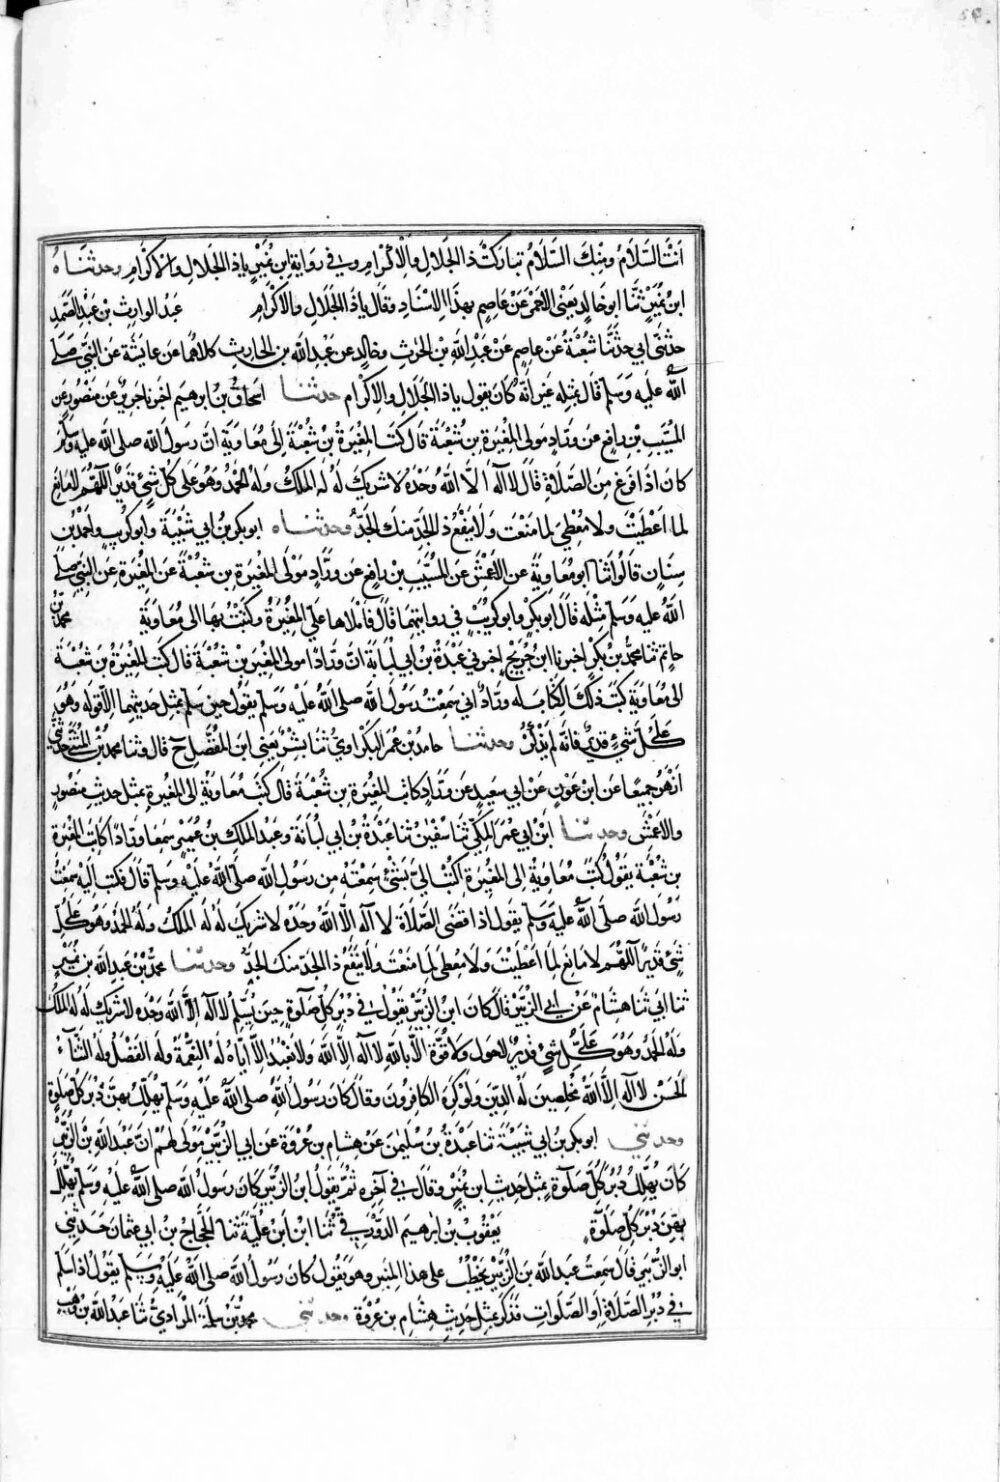 اَنْتَ السَّلَامُ وَمِنْكَ السَّلَامُ تَبَارَكْتَ ذَا الْجَلَالِ وَالْاِكْرَامِ وَفِي رِوَايَةِ ابْنِ نُمَيْرٍ يَا ذَا الْجَلَالِ وَالْاِكْرَامِ وحدثناه
ابن نُمَيْرٍ ثَنَا ابو خالد يعني الاحمر عَنْ عَاصِمٍ بِهَذَا الْاِسْنَادِ وَقَالَ يَا ذَا الْجَلَالِ وَالْاِكْرَامِ عبد الوارث بن عبد الصمد
حدثني ابي حدثنا شعبة عن عاصم عن عبد الله بن الحرث وخالد عن عبد الله بن الحارث كلاهما عن عايشة عن النبي صلى
الله عليه وسلم قال بمثله غير انه كان يقول يا ذا الجلال والاكرام حدثنا اسحاق بن ابرهيم اخبرنا جرير عن منصور عن
المسيب بن رافع عن وراد مولى المغيرة بن شعبة قال كتب المغيرة بن شعبة الى معاوية ان رسول الله صلى الله عليه وسلم
كان اذا فرغ من الصلاة قال لا اله الا الله وحده لا شريك له له الملك وله الحمد وهو على كل شيء قدير اللهم لا مانع
لما اعطيت ولا معطي لما منعت ولا ينفع ذا الجد منك الجد وحدثناه ابو بكر بن ابي شيبة وابو كريب واحمد بن
سنان قالوا ثنا ابو معاوية عن الاعمش عن المسيب بن رافع عن وراد مولى المغيرة بن شعبة عن المغيرة عن النبي صلى
الله عليه وسلم مثله قال ابو بكر وابو كريب في روايتهما قال فاملاها علي المغيرة وكتبت بها الى معاوية محمد بن
حاتم ثنا محمد بن بكر اخبرنا ابن جريج اخبرني عبدة بن ابي لبابة ان ورادا مولى المغيرة بن شعبة قال كتب المغيرة بن شعبة
الى معاوية كتب ذلك الكتاب له وراد اني سمعت رسول الله صلى الله عليه وسلم يقول حين سلم بمثل حديثهما الا قوله وهو
على كل شيء قدير فانه لم يذكر وحدثنا حامد بن عمر البكراوي ثنا بشر يعني ابن المفضل ح قال وثنا محمد بن المثنى حدثني
ازهر جميعا عن ابن عون عن ابي سعيد عن وراد كاتب المغيرة بن شعبة قال كتب معاوية الى المغيرة بمثل حديث منصور
والاعمش وحدثنا ابن ابي عمر المكي ثنا سفين ثنا عبدة بن ابي لبابة وعبد الملك بن عمير سمعا ورادا كاتب المغيرة
بن شعبة يقول كتب معاوية الى المغيرة اكتب الي بشيء سمعته من رسول الله صلى الله عليه وسلم قال فكتب اليه سمعت
رسول الله صلى الله عليه وسلم يقول اذا قضى الصلاة لا اله الا الله وحده لا شريك له له الملك وله الحمد وهو على كل
شيء قدير اللهم لا مانع لما اعطيت ولا معطي لما منعت ولا ينفع ذا الجد منك الجد وحدثنا محمد بن عبد الله بن نمير
ثنا ابي ثنا هشام عن ابي الزبير قال كان ابن الزبير يقول في دبر كل صلوة حين يسلم لا اله الا الله وحده لا شريك له له الملك
وله الحمد وهو على كل شيء قدير لا حول ولا قوة الا بالله لا اله الا الله ولا نعبد الا اياه له النعمة وله الفضل وله الثناء
الحسن لا اله الا الله مخلصين له الدين ولو كره الكافرون وقال كان رسول الله صلى الله عليه وسلم يهلل بهن دبر كل صلوة
وحدثني ابو بكر بن ابي شيبة ثنا عبدة بن سليمن عن هشام بن عروة عن ابي الزبير مولى لهم ان عبد الله بن الزبير
كان يهلل دبر كل صلوة بمثل حديث ابن نمير وقال في آخره ثم يقول ابن الزبير كان رسول الله صلى الله عليه وسلم يهلل
بهن دبر كل صلوة يعقوب بن ابرهيم الدورقي ثنا ابن علية ثنا الحجاج بن ابي عثمان حدثني
ابو الزبير قال سمعت عبد الله بن الزبير يخطب على هذا المنبر وهو يقول كان رسول الله صلى الله عليه وسلم يقول اذا سلم
في دبر الصلاة او الصلوات فذكر بمثل حديث هشام بن عروة وحدثني محمد بن سلمة المرادي ثنا عبد الله بن وهب